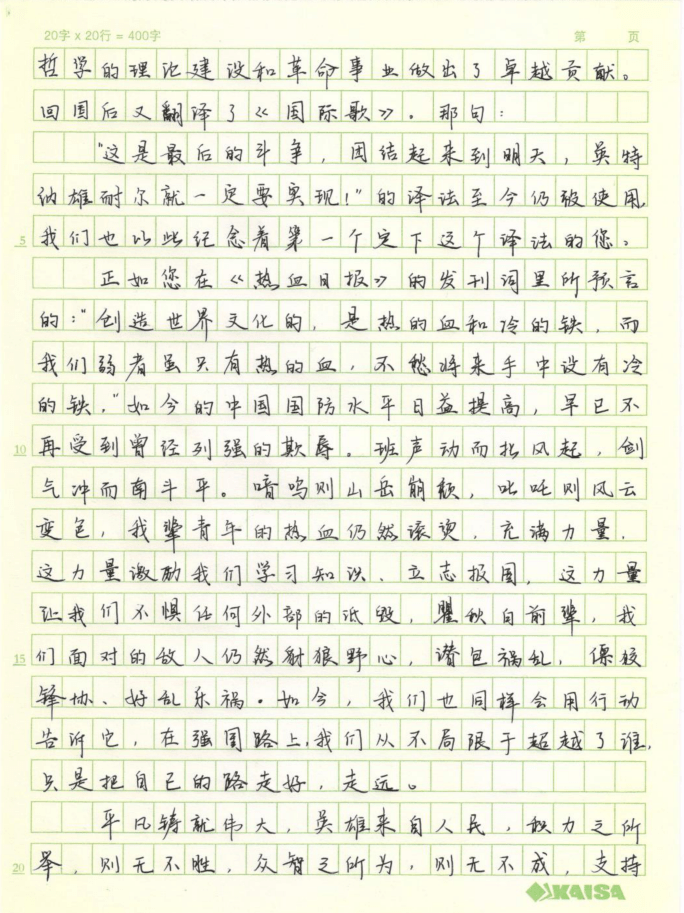 20字 x 20行 = 400字 第 页
哲学的理论建设和革命事业做出了卓越贡献。
回国后又翻译了《国际歌》。那句：
"这是最后的斗争，团结起来到明天，英特
纳雄耐尔就一定要实现！"的译法至今仍被使用，
5 我们也以此纪念着第一个定下这个译法的您。
正如您在《热血日报》的发刊词里所预言
的："创造世界文化的，是热的血和冷的铁，而
我们弱者虽只有热的血，不愁将来手中没有冷
的铁，"如今的中国国防水平日益提高，早已不
10 再受到曾经列强的欺辱。班声动而北风起，剑
气冲而南斗平。喑呜则山岳崩颓，叱吒则风云
变色，我辈青年的热血仍然滚烫，充满力量，
这力量激励我们学习知识、立志报国，这力量
让我们不惧任何外部的诋毁，瞿秋白前辈，我
15 们面对的敌人仍然豺狼野心，潜包祸乱，僄狡
锋协、好乱乐祸。如今，我们也同样会用行动
告诉它，在强国路上，我们从不局限于超越了谁，
只是把自己的路走好，走远。
平凡铸就伟大，英雄来自人民，积力之所
20 举，则无不胜，众智之所为，则无不成，支持
KAISA